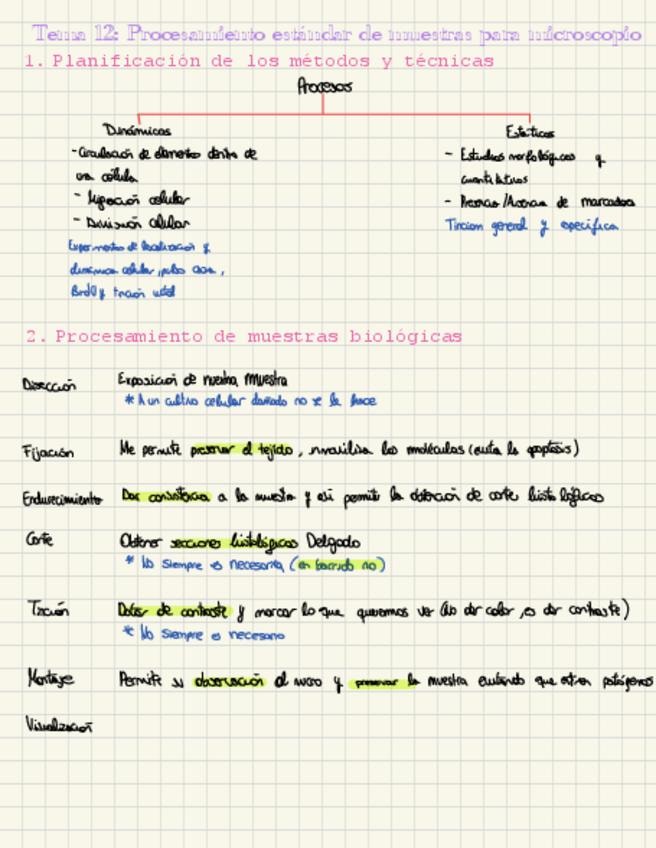 Tema 12: Procesamiento estándar de muestras para microscopio
1. Planificación de los métodos y técnicas
Procesos
Dinámicos
- Circulación de elementos dentro de
una célula
- Migración celular
- División celular
Experimentos de localización y
dinámica celular, pulso caza,
BrdU y tinción vital
Estáticos
- Estudios morfológicos y
cuantitativos
- Presencia/Ausencia de marcadores
Tincion general y especifica
2. Procesamiento de muestras biológicas
Disección
Exposición de nuestra muestra
* A un cultivo celular no se le hace
Fijación
Me permite preservar el tejido, inmoviliza las moléculas (evita la apoptosis)
Endurecimiento
Dar consistencia a la muestra y así permite la obtención de corte histológicos
Corte
Obtener secciones histológicas Delgado
* No siempre es necesaria (en barrido no)
Tinción
Dotar de contraste y marcar lo que queremos ver (No dar color, es dar contraste)
* No siempre es necesario
Montaje
Permite su observación al micro y preservar la muestra evitando que entren patógenos
Visualización